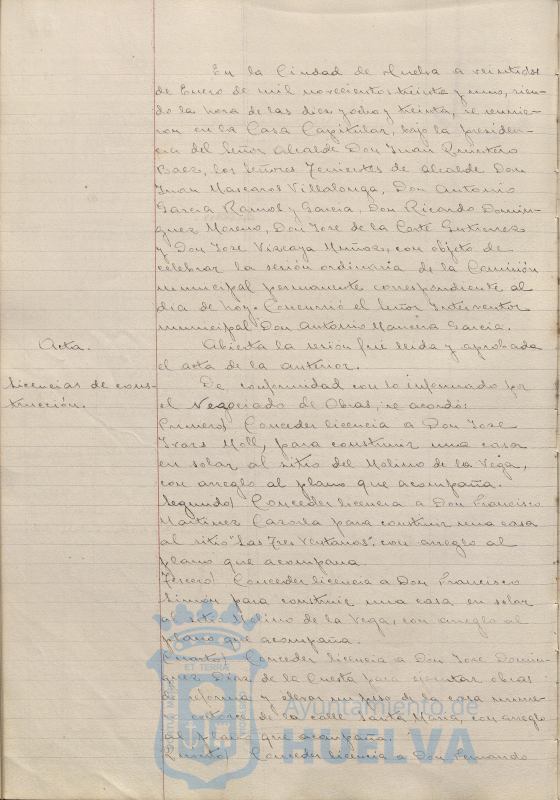 En la Ciudad de Huelva a veintidos
de Enero de mil novecientos treinta y uno, sien-
do la hora de las diez y ocho y treinta, se reunie-
ron en la Casa Capitular, bajo la presiden-
cia del Señor Alcalde Don Juan Quintero
Baez, los Señores Tenientes de Alcalde Don
Juan Mascaros Villalonga, Don Antonio
Garcia Ramos y Garcia, Don Ricardo Domin-
guez Moreno, Don Jose de la Corte Gutierrez
y Don Jose Vizcaya Muñoz, con objeto de
celebrar la sesión ordinaria de la Comisión
municipal permanente correspondiente al
día de hoy. Concurrió el Señor Interventor
municipal Don Antonio Manceira Garcia.
Acta. Abierta la sesión fué leida y aprobada
el acta de la anterior.
Licencias de cons- De conformidad con lo informado por
trucción. el Negociado de Obras, se acordó:
Primero) Conceder licencia a Don Jose
Ivars Moll, para construir una casa
en solar al sitio del Molino de la Vega,
con arreglo al plano que acompaña.
Segundo) Conceder licencia a Don Francisco
Martinez Cazorla para construir una casa
al sitio "Las Tres Ventanas", con arreglo al
plano que acompaña.
Tercero) Conceder licencia a Don Francisco
Limón para construir una casa en solar
al sitio Molino de la Vega, con arreglo al
plano que acompaña.
Cuarto) Conceder licencia a Don Jose Domin-
guez Diaz de la Cuesta para ejecutar obras
de reforma y elevar un piso de la casa núme-
ro catorce de la calle Santa Maria, con arreglo
al plano que acompaña.
Quinto) Conceder licencia a Don Fernando
ET TERRA
Ayuntamiento de
HUELVA